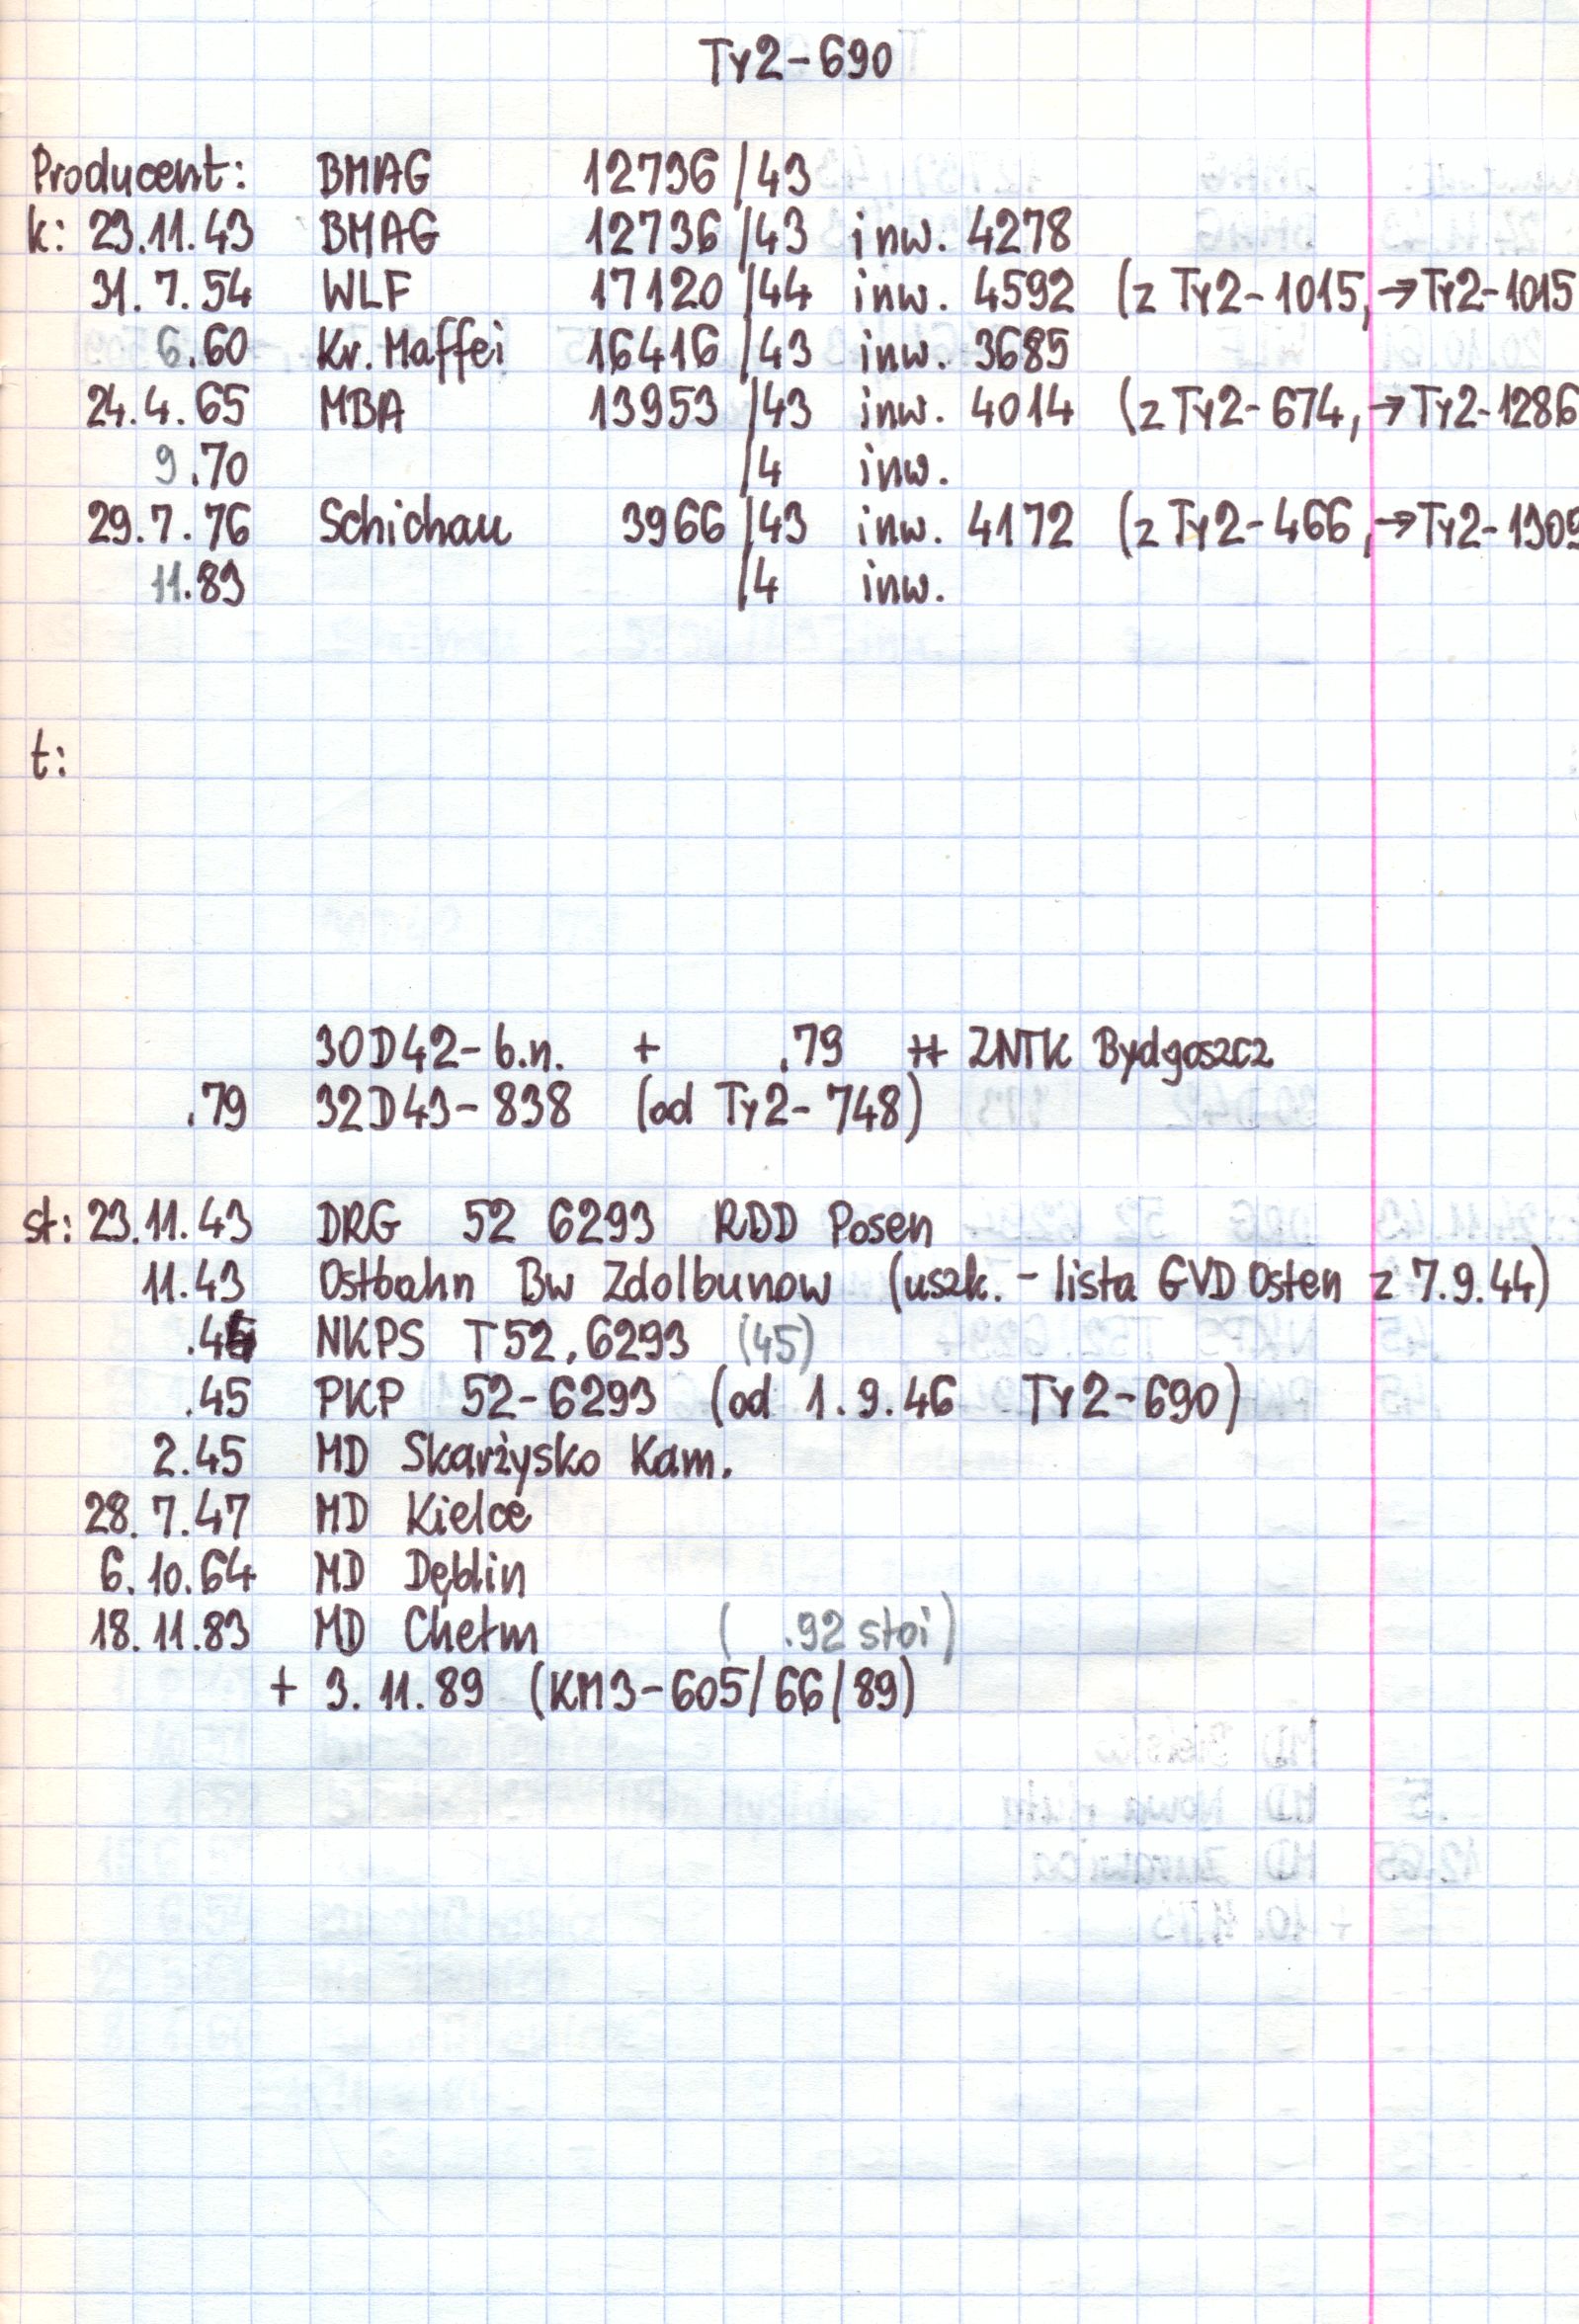 Ty2-690
Producent: BMAG 12736/43
k: 23.11.43 BMAG 12736/43 inw. 4278
31.7.54 WLF 17120/44 inw. 4592 (z Ty2-1015, →Ty2-1015
6.60 Kr. Maffei 16416/43 inw. 3685
24.4.65 MBA 13953/43 inw. 4014 (z Ty2-674, →Ty2-1286
9.70 /4 inw.
29.7.76 Schichau 3966/43 inw. 4172 (z Ty2-466, →Ty2-1309
11.83 /4 inw.
t:
30D42-b.n. + .79 ++ ZNTK Bydgoszcz
.79 32D43-838 (od Ty2-748)
st: 23.11.43 DRG 52 6293 RBD Posen
11.43 Ostbahn Bw Zdolbunow (uszk. - lista GVD Osten z 7.9.44)
NKPS T52.6293 (45)
.45 PKP 52-6293 (od 1.9.46 Ty2-690)
2.45 MD Skarżysko Kam.
28.7.47 MD Kielce
6.10.64 MD Dęblin
18.11.83 MD Chełm ( .92 stoi)
+ 3.11.89 (KM3-605/66/89)